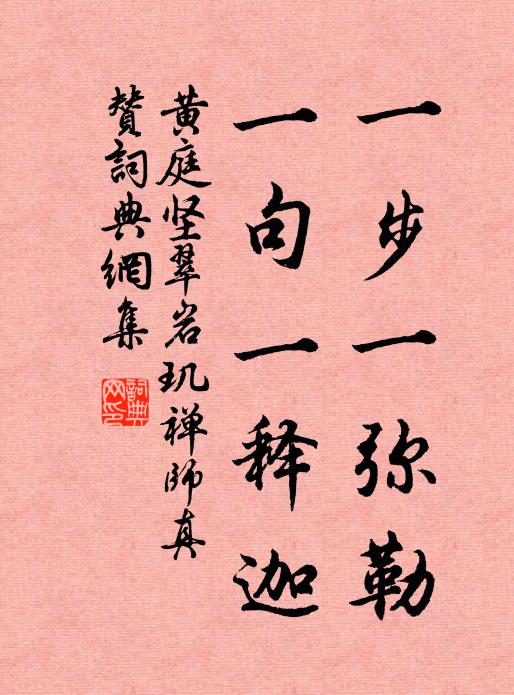 一步一弥勒
一句一释迦
黄庭坚翠岩玑禅师真
赞詞典網集
詞典网印